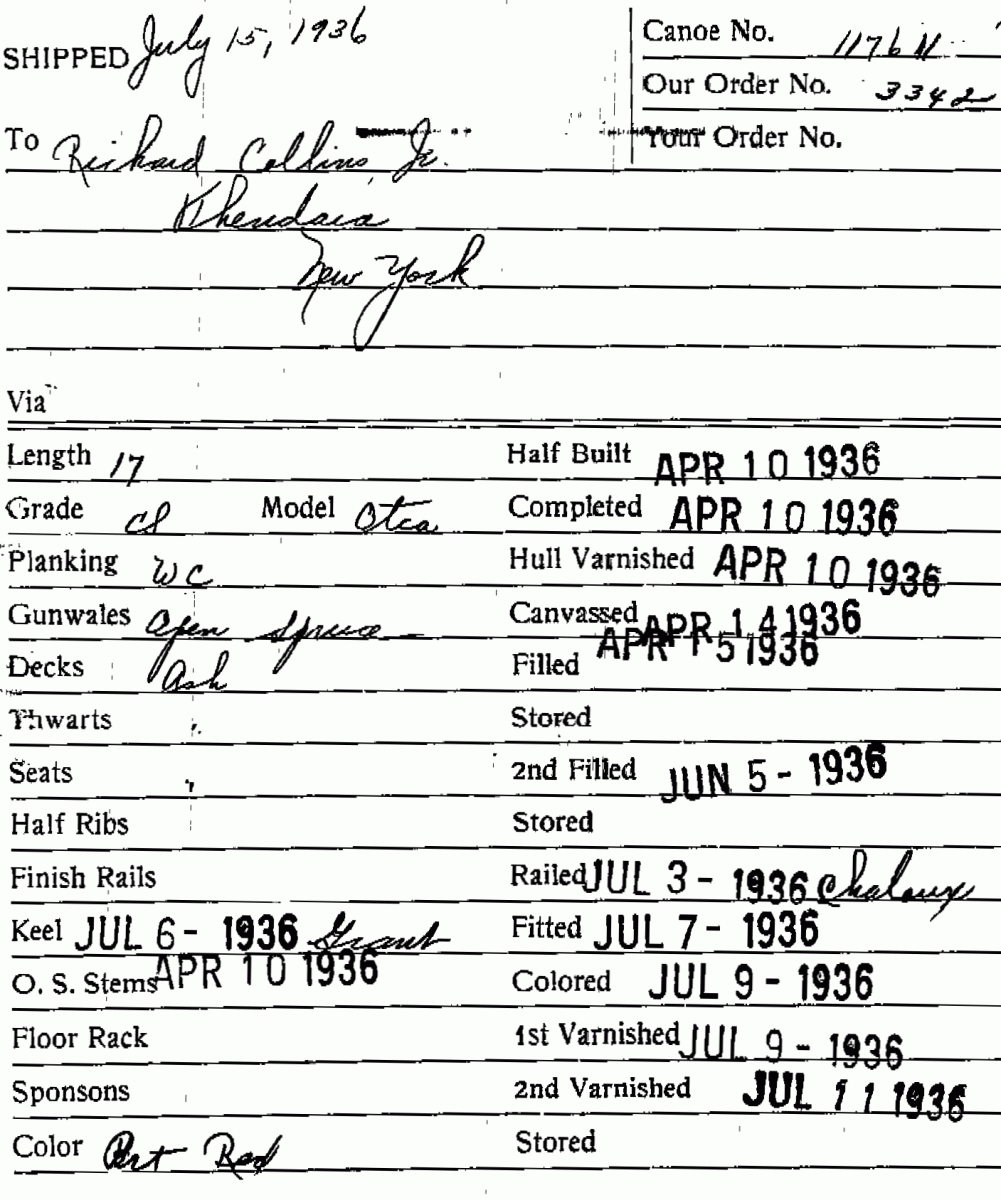 SHIPPED July 15, 1936
Canoe No. 1176
Our Order No. 3342
To Richard Collins, Jr.
Your Order No.
Thendara
New York
Via
Length 17 Half Built APR 10 1936
Grade CS Model Otca Completed APR 10 1936
Planking WC Hull Varnished APR 10 1936
Gunwales Open Spruce Canvassed APR 14 1936
Decks Ash Filled APR 15 1936
Thwarts " Stored
Seats " 2nd Filled JUN 5 - 1936
Half Ribs Stored
Finish Rails Railed JUL 3 - 1936 Chaloux
Keel JUL 6 - 1936 Grant Fitted JUL 7 - 1936
O. S. Stems APR 10 1936 Colored JUL 9 - 1936
Floor Rack 1st Varnished JUL 9 - 1936
Sponsons 2nd Varnished JUL 11 1936
Color Red Stored